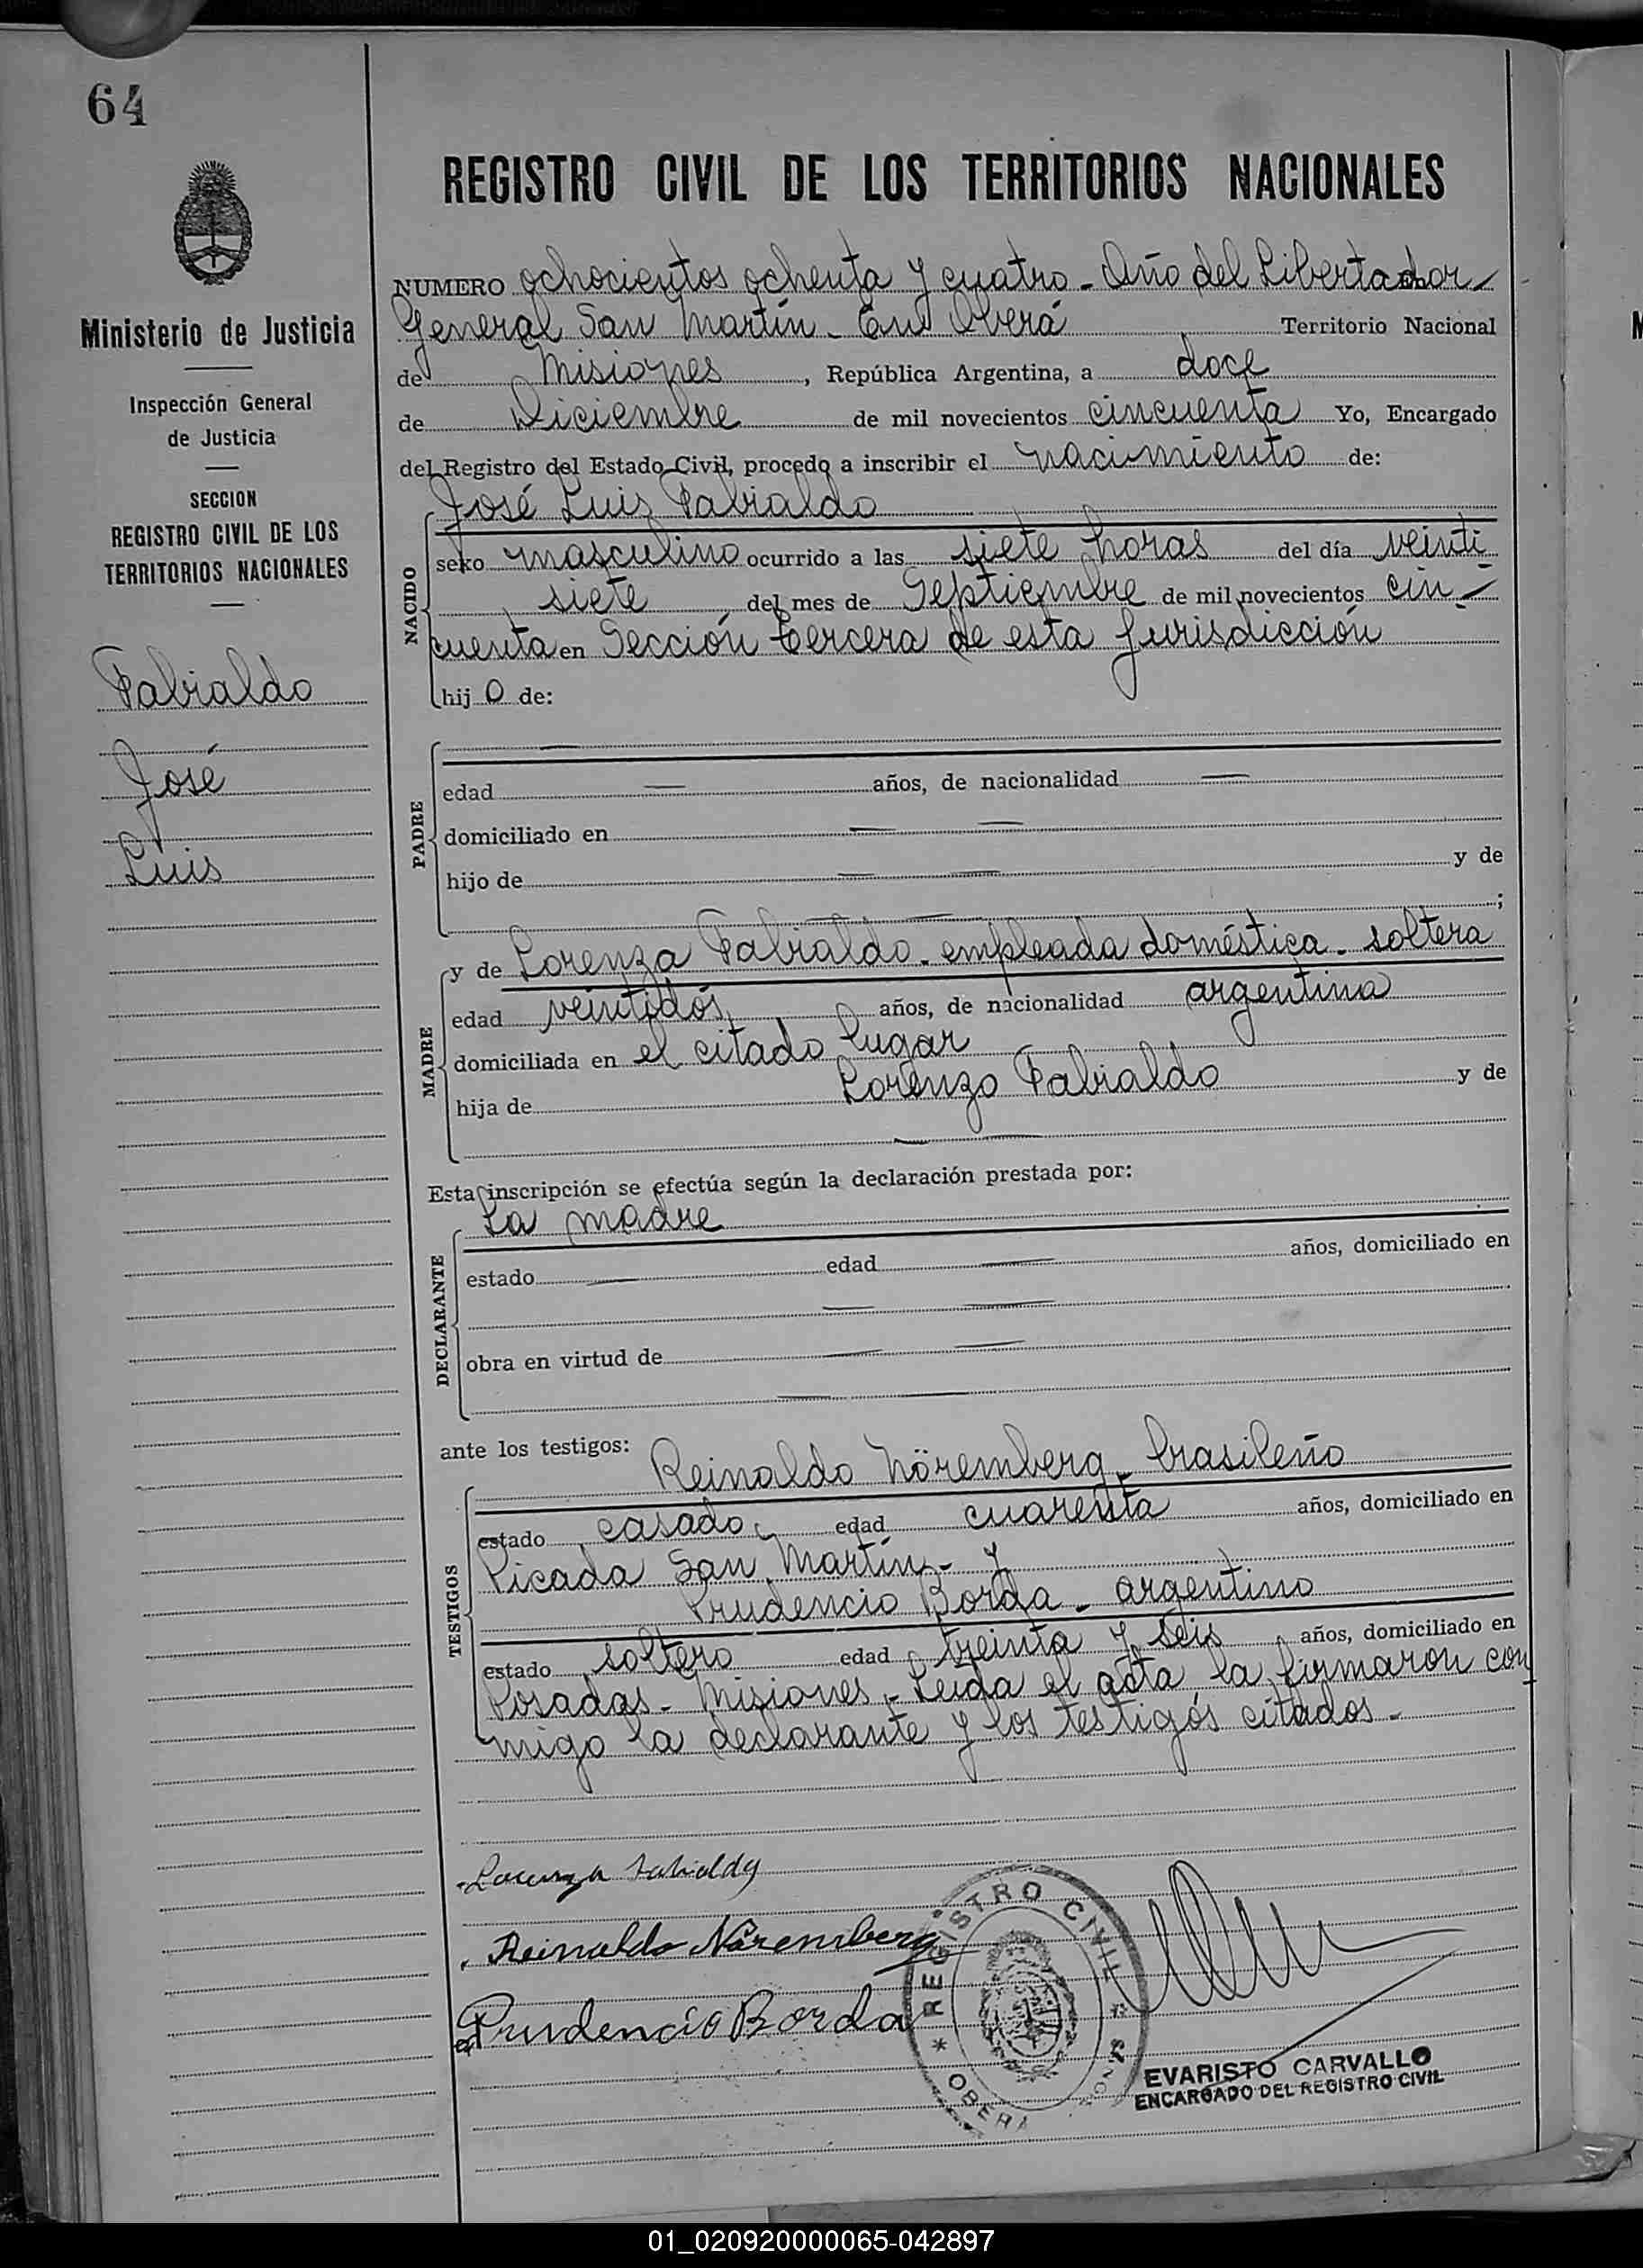 64
REGISTRO CIVIL DE LOS TERRITORIOS NACIONALES
Ministerio de Justicia
Inspección General
de Justicia
SECCION
REGISTRO CIVIL DE LOS
TERRITORIOS NACIONALES
Fabialdo
José
Luis
NUMERO ochocientos ochenta y cuatro - Año del Libertador
General San Martín - En Oberá Territorio Nacional
de Misiones, República Argentina, a doce
de Diciembre de mil novecientos cincuenta Yo, Encargado
del Registro del Estado Civil, procedo a inscribir el nacimiento de:
José Luis Fabialdo
NACIDO
sexo masculino ocurrido a las siete horas del día veinti
siete del mes de Septiembre de mil novecientos cin-
cuenta en Sección tercera de esta jurisdicción
hij o de:
PADRE
edad años, de nacionalidad
domiciliado en
hijo de y de
;
MADRE
y de Lorenza Fabialdo - empleada doméstica - soltera
edad veintidós años, de nacionalidad argentina
domiciliada en el citado lugar
hija de Lorenzo Fabialdo y de
Esta inscripción se efectúa según la declaración prestada por:
La madre
DECLARANTE
estado edad años, domiciliado en
obra en virtud de
ante los testigos:
Reinaldo Nöremberg - brasileño
TESTIGOS
estado casado edad cuarenta años, domiciliado en
Picada San Martín - y
Prudencio Borda - argentino
estado soltero edad treinta y seis años, domiciliado en
Posadas - Misiones - Leída el acta la firmaron con
migo la declarante y los testigos citados -
Lorenza Fabialdo
Reinaldo Nöremberg
Prudencio Borda
REGISTRO CIVIL
OBERA
EVARISTO CARVALLO
ENCARGADO DEL REGISTRO CIVIL
01_020920000065-042897